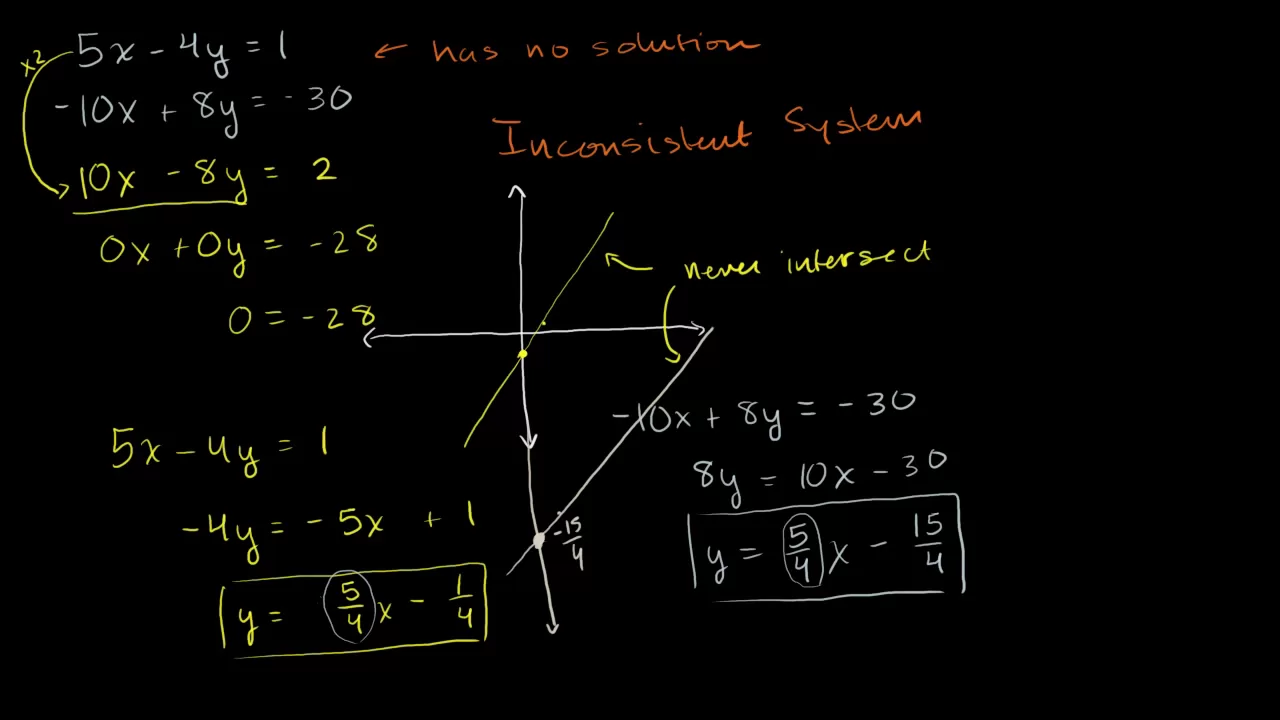 x2
5x - 4y = 1 ← has no solution
-10x + 8y = -30
Inconsistent System
10x - 8y = 2
0x + 0y = -28
never intersect
0 = -28
-10x + 8y = -30
5x - 4y = 1
8y = 10x - 30
-4y = -5x + 1
-15/4
y = 5/4 x - 15/4
y = 5/4 x - 1/4